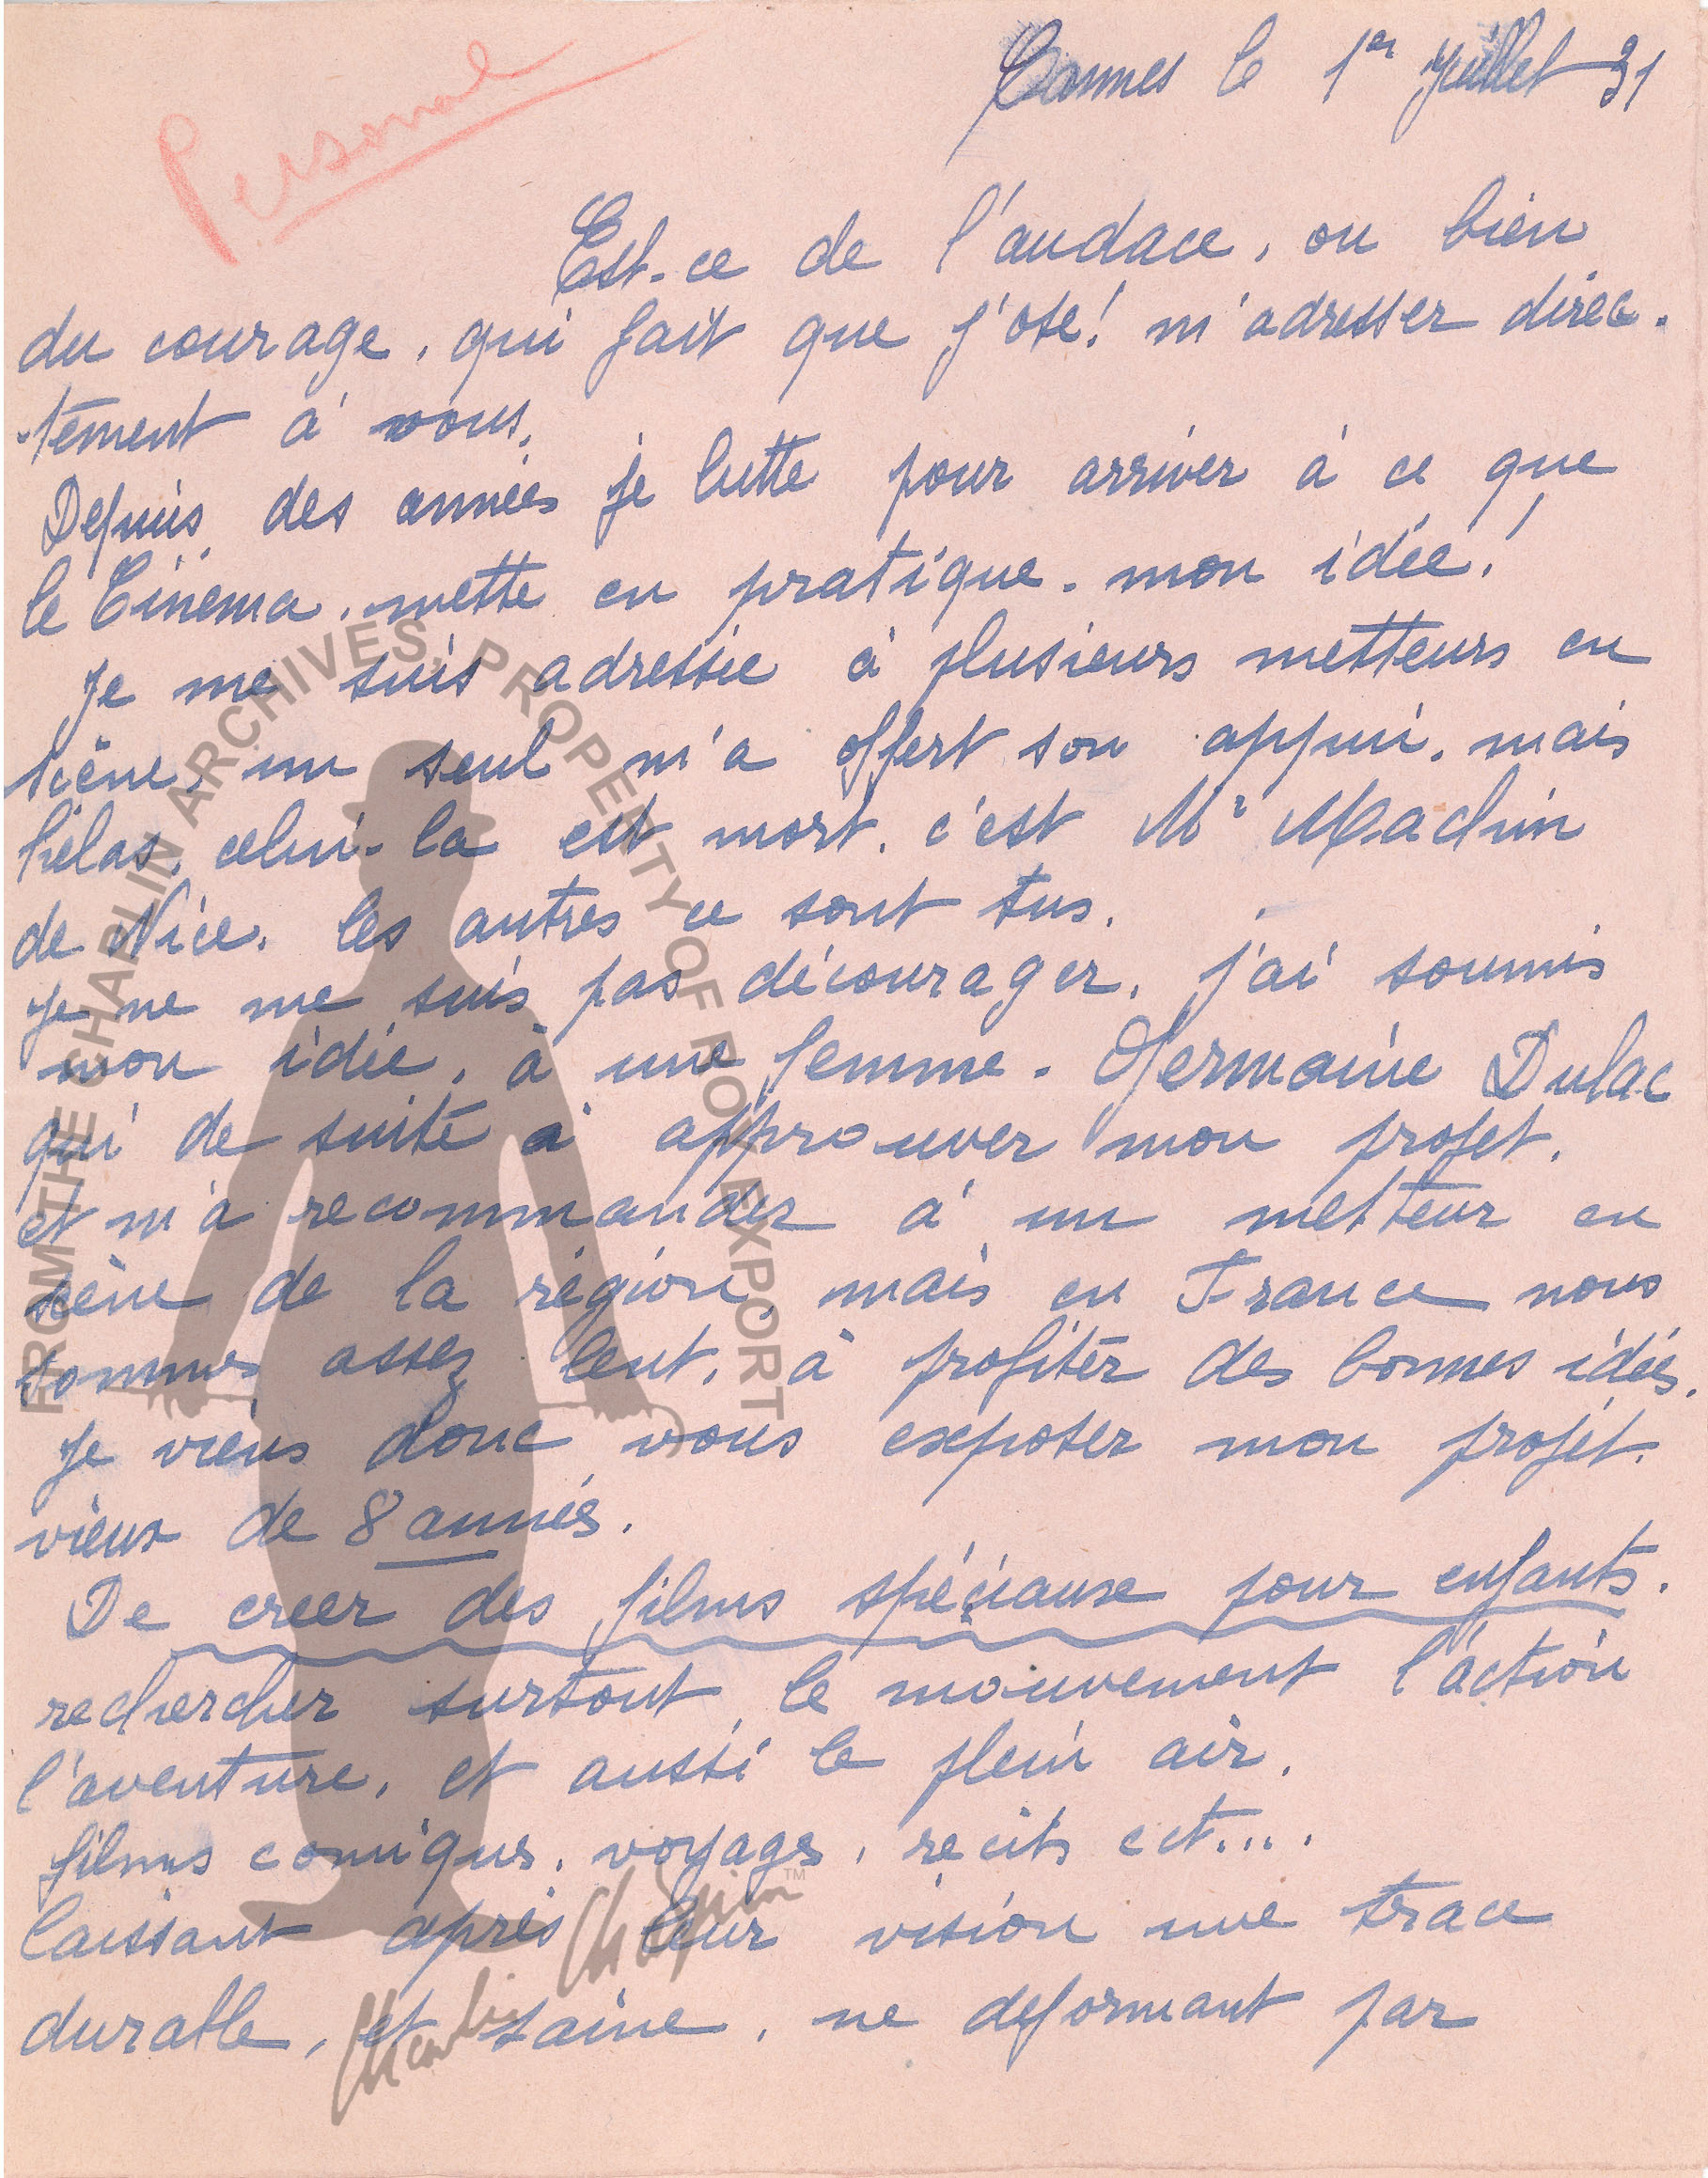 Cannes le 1er Juillet 31
Personal
Est-ce de l'audace, ou bien
du courage, qui fait que j'ose! m'adresser direc-
-tement à vous.
Depuis des années je lutte pour arriver à ce que
le Cinéma, mette en pratique. mon idée!
Je me suis adressée à plusieurs metteurs en
scène, un seul m'a offert son appui, mais
hélas, celui-la est mort. c'est Mr Machin
de Nice. les autres ce sont tus.
Je ne me suis pas décourager, j'ai soumis
mon idée, à une femme. Germaine Dulac
qui de suite à approuver mon projet.
et m'a recommander à un metteur en
scène de la région, mais en France nous
sommes assez lent, à profiter des bonnes idées.
Je viens donc vous exposer mon projet.
vieux de 8 années.
De creer des films spéciaux pour enfants.
rechercher surtout le mouvement l'action
l'aventure, et aussi le plein air.
films comiques, voyages, recits ect....
laissant après leur vision une trace
durable, et saine, ne deformant par
FROM THE CHAPLIN ARCHIVES, PROPERTY OF ROY EXPORT
Charlie Chaplin TM